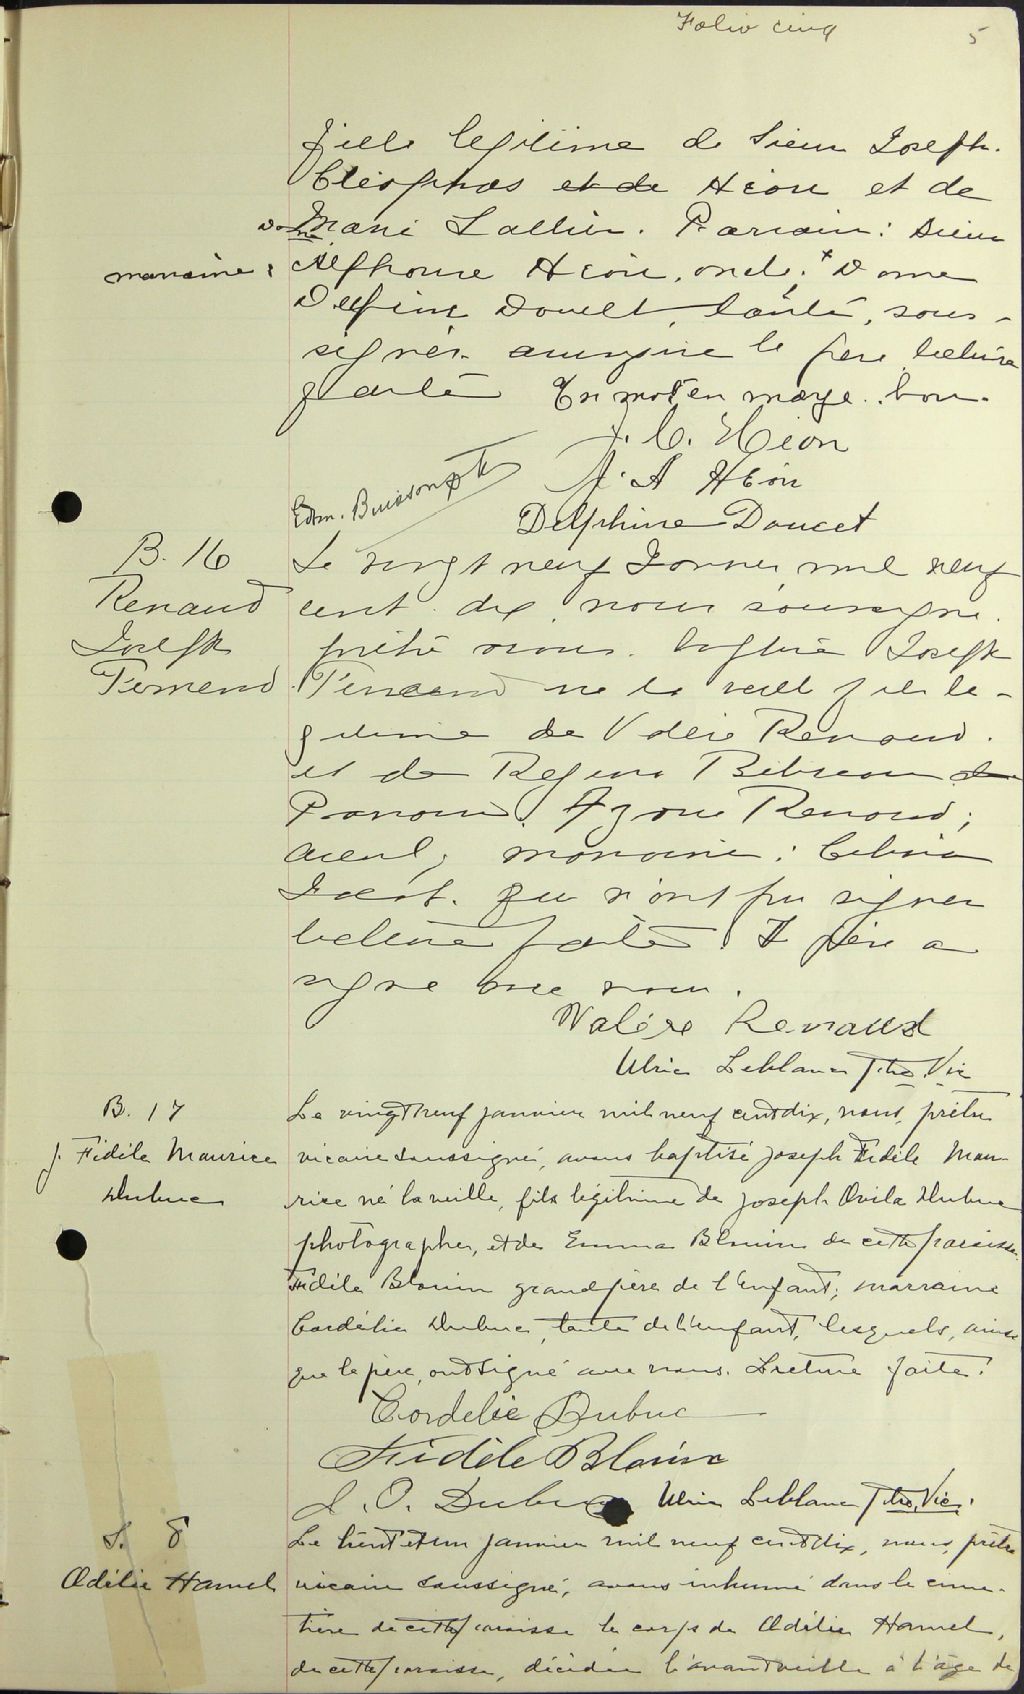 Folio cinq
5
fille legitime de Sieur Joseph
Cléophas et de Héon et de
Dame Marie Lallier. Parrain: Sieur
marraine: Alphonse Héon, oncle; + Dame
Delfine Doucet, tante, sous-
signés. ainsi que le père lecture
faite Un mot en marge. bon.
J. C. Héon
J. A Héon
Edm. Buisson ptr
Delphine Doucet
B. 16
Renaud
Joseph
Fernend
Le vingt neuf Janvier mil neuf
cent dix, nous soussigné
prêtre avons baptisé Joseph
Fernand né la veille fils lé-
gitime de Valère Renaud
et de Regina Bibeau
Parrain: Renaud;
aieul; marraine: Celina
qui n'ont pu signer
lecture faite. Le père a
signé avec nous.
Valére Renaud
Ulric Leblanc Ptre. Vic
B. 17
J. Fidèle Maurice
Dubuc
Le vingt neuf janvier mil neuf cent dix, nous, prêtre
vicaire soussigné, avons baptisé Joseph Fidèle Mau-
rice né la veille, fils légitime de Joseph Ovila Dubuc
photographe, et de Emma Blouin de cette paroisse.
Fidèle Blouin grand père de l'enfant; marraine
Cordélie Dubuc, tante de l'enfant, lesquels, ainsi
que le père, ont signé avec nous. Lecture faite.
Cordelie Dubuc
Fidèle Blouin
J. O. Dubuc Ulric Leblanc Ptre. Vic.
S. 8
Odélie Hamel
Le trent et un janvier mil neuf cent dix, nous, prêtre
vicaire soussigné, avons inhumé dans le cime-
tière de cette paroisse le corps de Odélie Hamel,
de cette paroisse, décédée l'avant veille à l'âge de